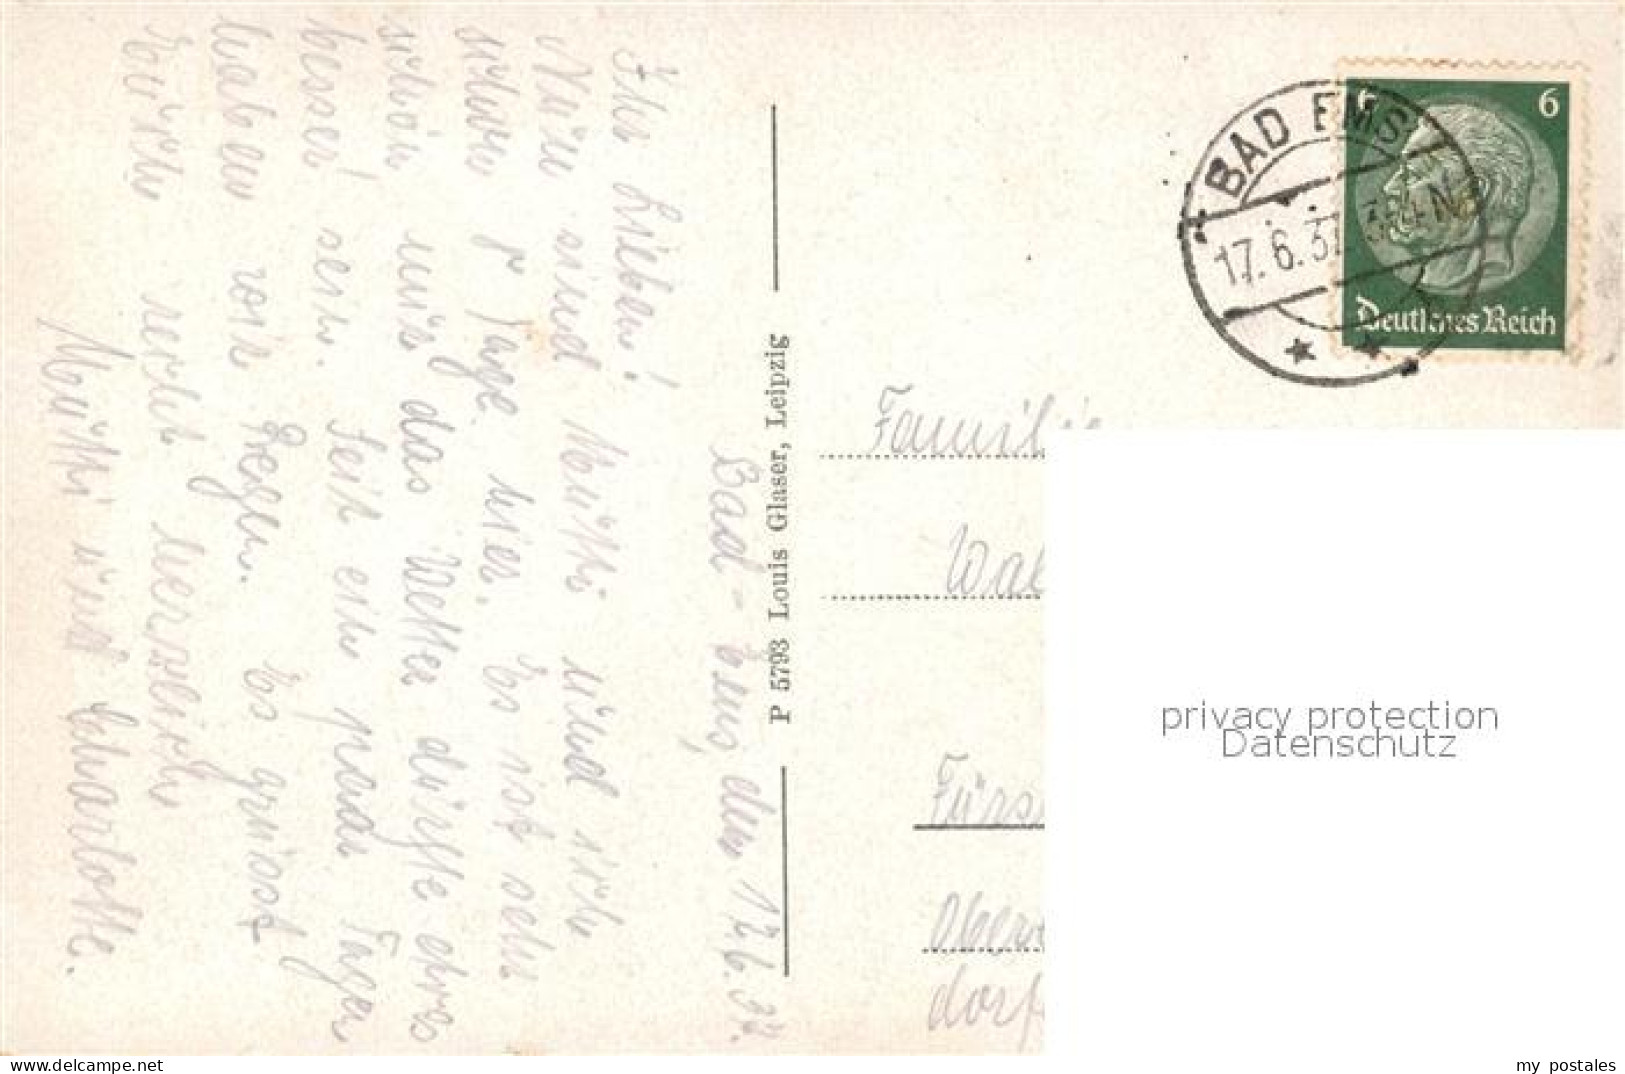 Bad-Ems, den 17.6.37.
Ihr Lieben!
Nun sind Mutti und ich
schon 8 Tage hier. Es ist sehr
schön nur das Wetter dürfte etwas
besser sein. Seit ein paar Tagen
haben wir Regen. Es grüsst
Euch recht herzlich
Mutti und Charlotte.
P 5793 Louis Glaser, Leipzig
BAD EMS
17.6.37
6 6
Deutsches Reich
Familie
privacy protection
Datenschutz
delcampe.net
my_postales